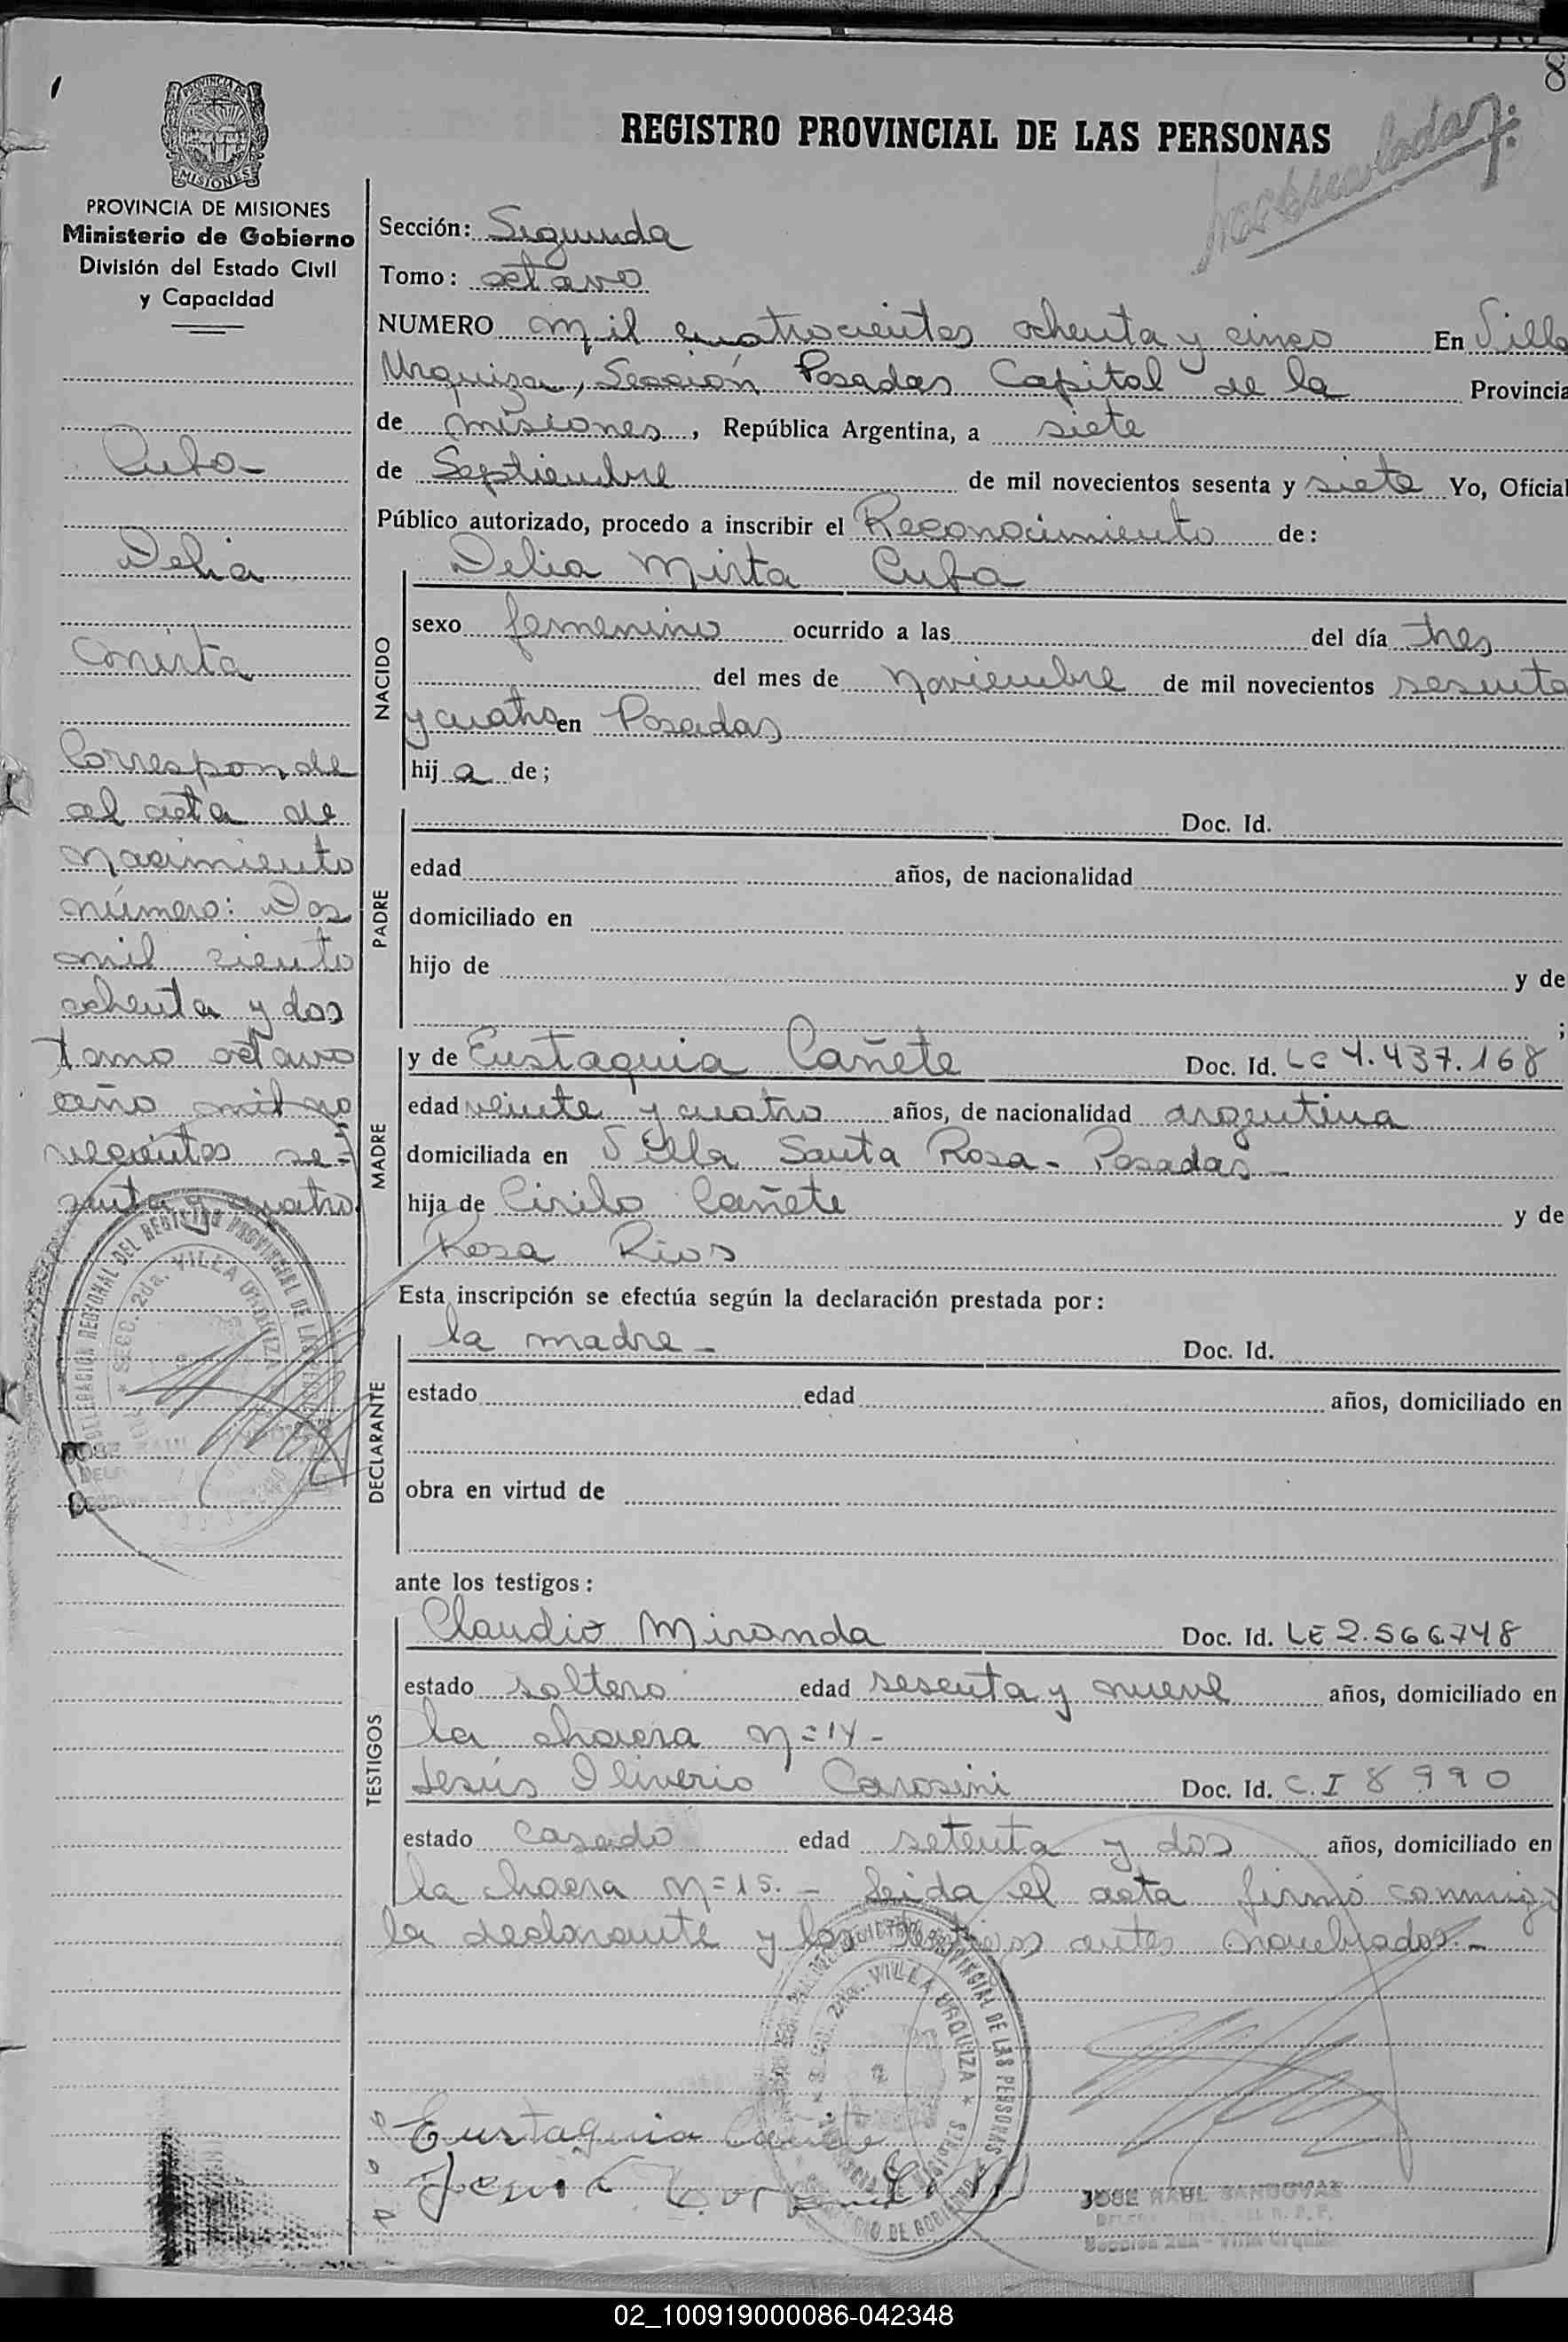 8
PROVINCIA DE
MISIONES
REGISTRO PROVINCIAL DE LAS PERSONAS
PROVINCIA DE MISIONES
Ministerio de Gobierno
División del Estado Civil
y Capacidad
Sección: Segunda
Tomo: octavo
NUMERO mil cuatrocientos ochenta y cinco En Villa
Urquiza, Sección Posadas Capital de la Provincia
de misiones, República Argentina, a siete
de Septiembre de mil novecientos sesenta y siete Yo, Oficial
Público autorizado, procedo a inscribir el Reconocimiento de:
Cuba
Delia
Mirta
Corresponde
al acta de
Nacimiento
número: Dos
mil ciento
ochenta y dos
tomo octavo
año mil no
vecientos se=
senta y cuatro
NACIDO
Delia Mirta Cuba
sexo femenino ocurrido a las del día tres
del mes de Noviembre de mil novecientos sesenta
y cuatro en Posadas
hij a de;
PADRE
Doc. Id.
edad años, de nacionalidad
domiciliado en
hijo de y de
;
MADRE
y de Eustaquia Cañete Doc. Id. LC 4.437.168
edad veinte y cuatro años, de nacionalidad argentina
domiciliada en Villa Santa Rosa - Posadas -
hija de Cirilo Cañete y de
Rosa Rios
Esta inscripción se efectúa según la declaración prestada por:
DECLARANTE
la madre - Doc. Id.
estado edad años, domiciliado en
obra en virtud de
ante los testigos:
TESTIGOS
Claudio Miranda Doc. Id. LE 2.566.748
estado soltero edad sesenta y nueve años, domiciliado en
la chacra N=14-
Jesús Oliverio Carosini Doc. Id. C.I 8990
estado casado edad setenta y dos años, domiciliado en
la chacra N=15. - Leida el acta firmó conmigo
la declarante y los testigos antes nombrados. -
DELEGACION REGIONAL DEL REGISTRO PROVINCIAL DE LAS
SECC. 2da. VILLA URQUIZA
PROVINCIAL DE LAS PERSONAS
VILLA URQUIZA
Eustaquia Cañete
JOSE RAUL SANDOVAL
Sección 2da - Villa Urquiza
02_100919000086-042348